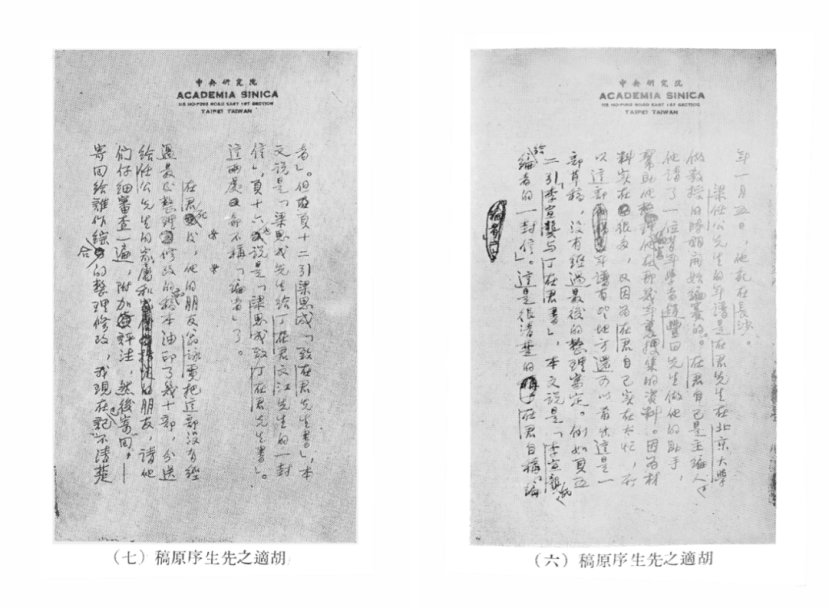 中央研究院
ACADEMIA SINICA
TAIPEI TAIWAN
年一月五日，他死在長沙。
梁任公先生的年譜是在君先生在北京大學
做教授的時期開始編纂的。在君自己是主編人，
他請了一位青年學者趙豐田先生做他的助手，
幫助他整理他在那幾年裏搜集的資料。因為材
料實在很多，又因為在君自己實在太忙，所
以這部年譜有些地方還可以看出這是一
部草稿，沒有經過最後的整理寫定。例如頁五
二引李宣龔与丁在君書，本文說是「李宣龔
給編者的一封信」。這是很清楚的在君自稱「編
（六）稿原序生先之適胡
中央研究院
ACADEMIA SINICA
TAIPEI TAIWAN
者」。但在頁十二引梁思成「致在君先生書」，本
文說是「梁思成先生給丁在君文江先生的一封
信」，頁十六說是「梁思成致丁在君先生書」。
這兩處都不稱「編者」了。
在君死後，他的朋友翁詠霓把這部沒有經
過最後整理修改的稿本油印了幾十部，分送
給任公先生的家屬和朋友，請他
們仔細審查一遍，附加評注，然後寄回。——
寄回給誰作綜合的整理修改，我現在記不清楚
（七）稿原序生先之適胡